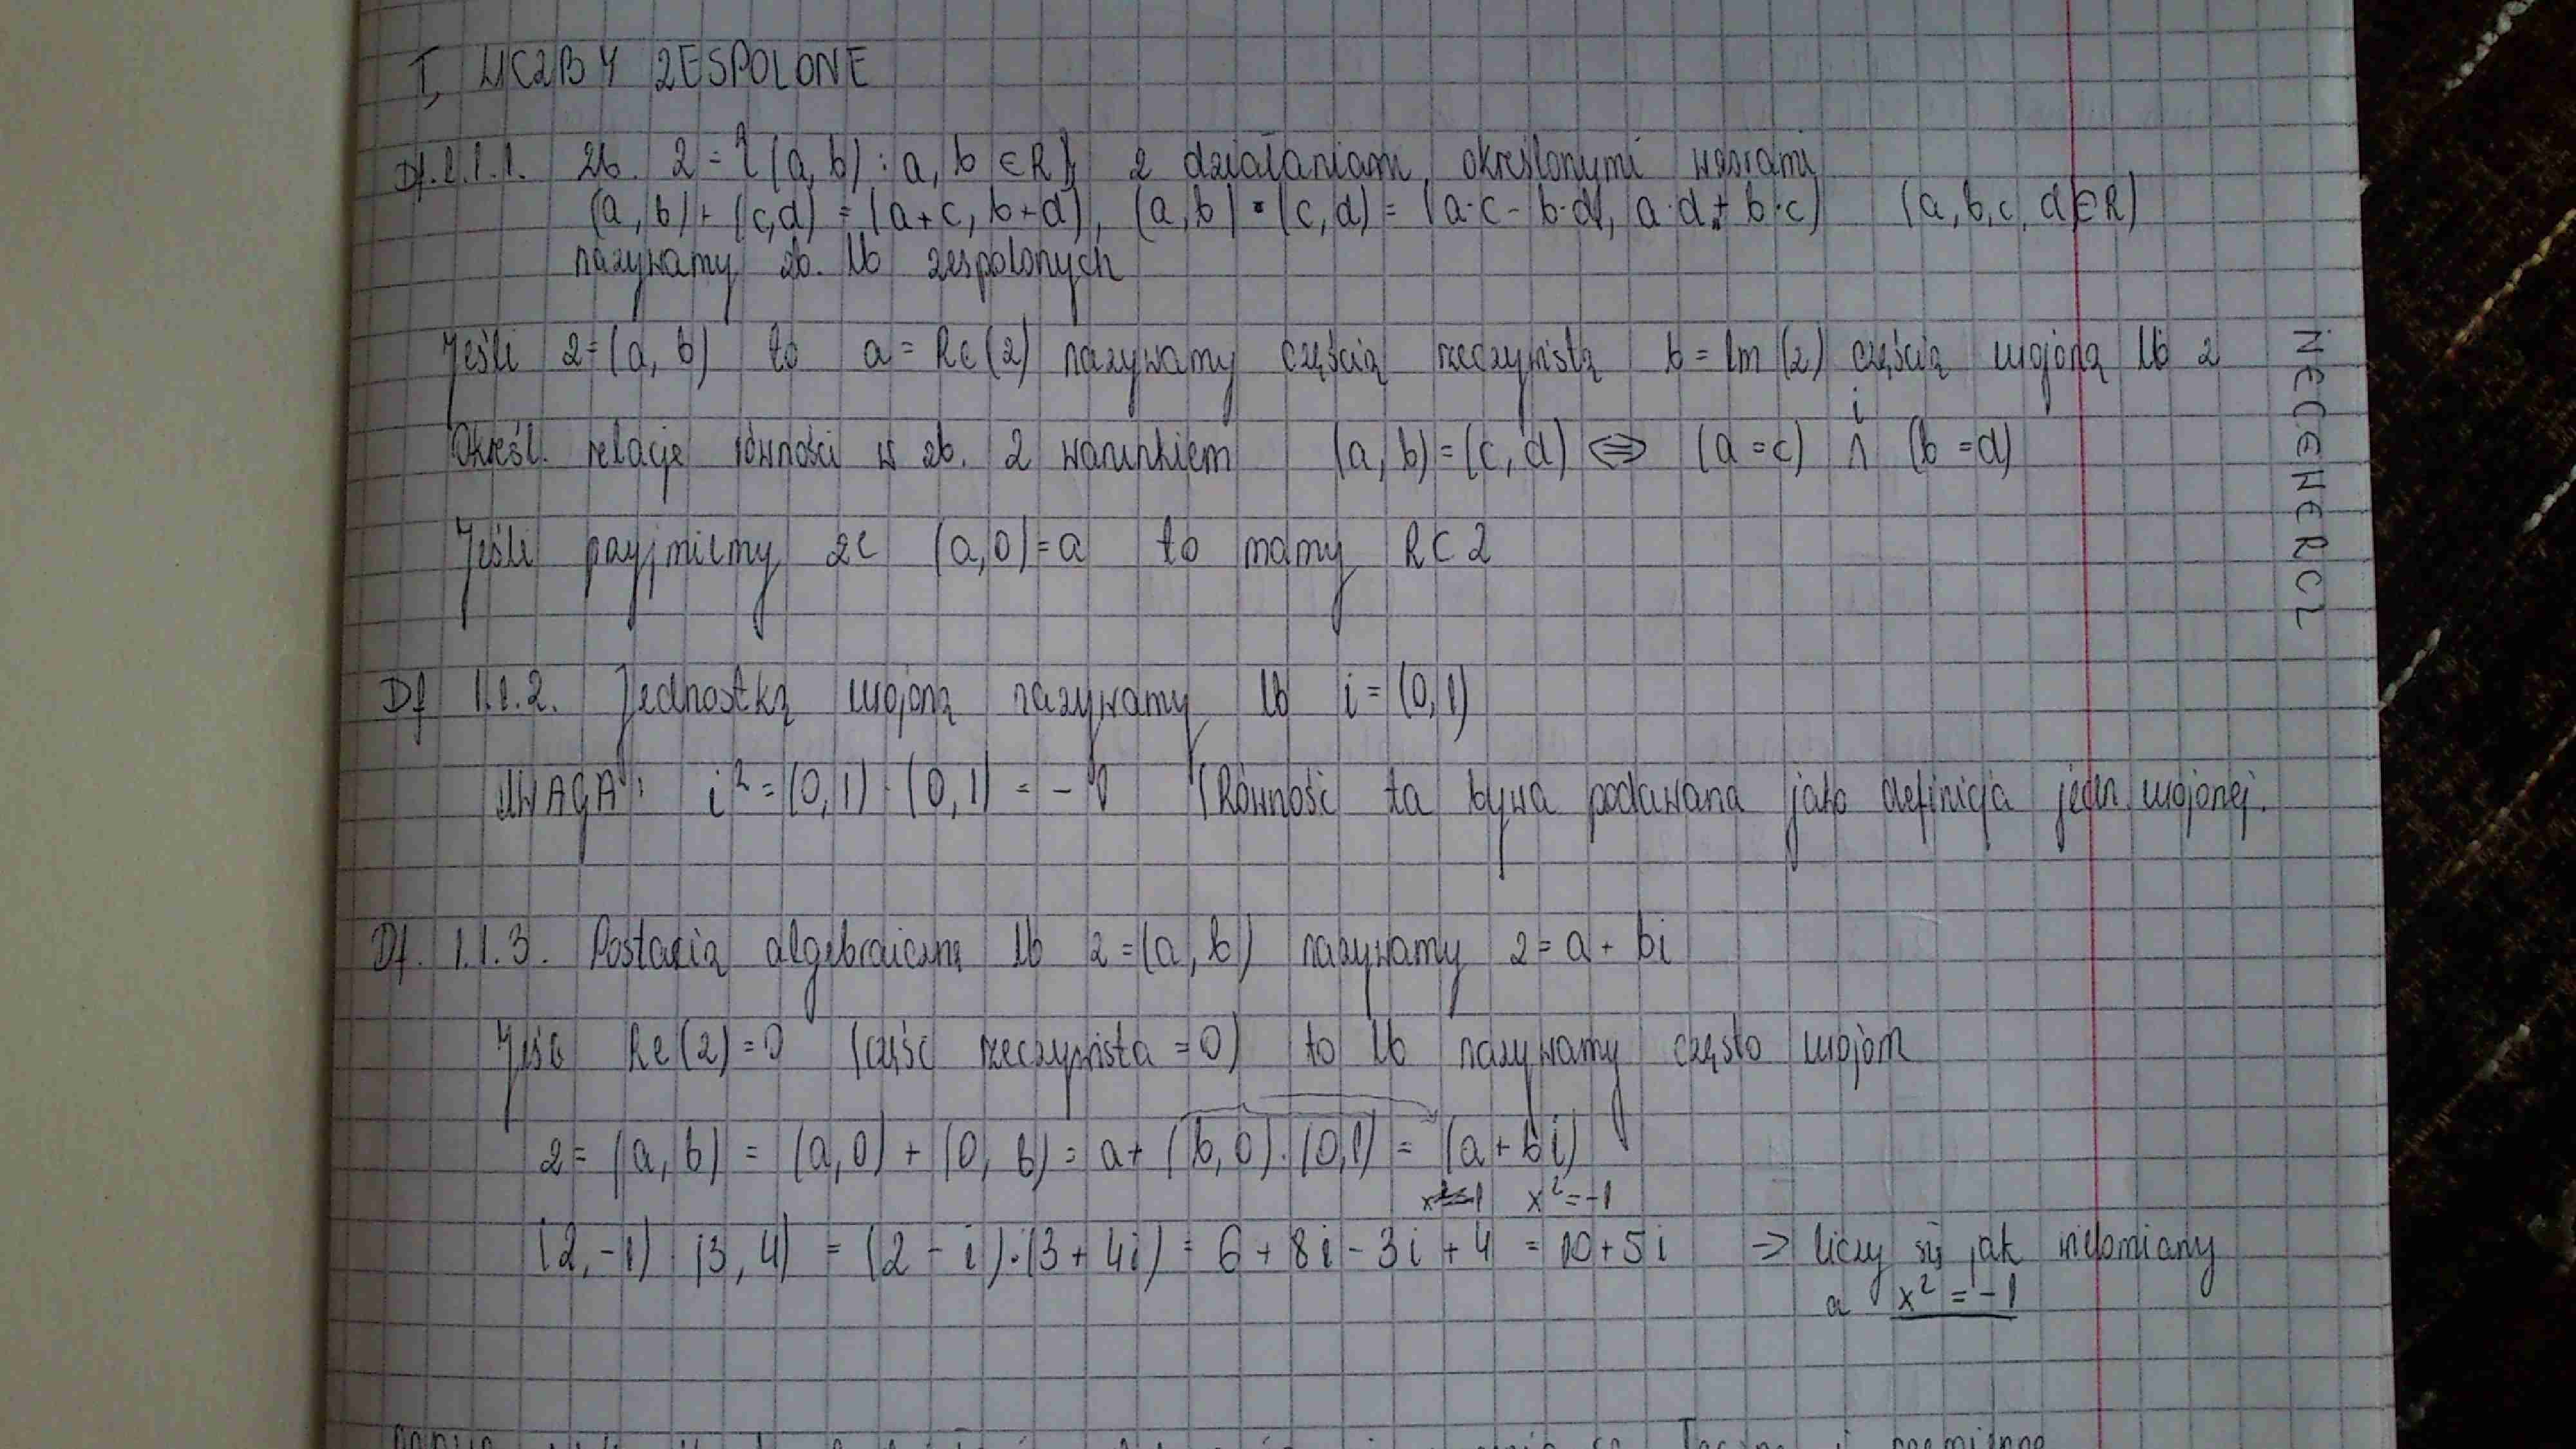 I, LICZBY ZESPOLONE
Df.1.1.1. Zb. Z = {(a, b) : a, b ∈ R} z działaniam określonymi wzorami
(a, b) + (c, d) = (a+c, b+d), (a, b) · (c, d) = (a·c - b·d, a·d + b·c) (a, b, c, d ∈ R)
nazywamy zb. lb zespolonych
Jeśli z = (a, b) to a = Re(z) nazywamy częścią rzeczywistą b = Im(z) częścią urojoną lb z
i
Określ. relacje równości w zb. Z warunkiem (a, b) = (c, d) ⇔ (a = c) ∧ (b = d)
Jeśli przyjmiemy że (a, 0) = a to mamy R ⊂ Z
Df 1.1.2. Jednostką urojoną nazywamy lb i = (0, 1)
UWAGA: i² = (0, 1) · (0, 1) = -1 (Równość ta bywa podawana jako definicja jedn urojonej.
Df. 1.1.3. Postacią algebraiczną lb z = (a, b) nazywamy z = a + bi
Jeśli Re(z) = 0 (część rzeczywista = 0) to lb nazywamy często urojom
z = (a, b) = (a, 0) + (0, b) = a + (b, 0) · (0, 1) = (a + bi)
x² = -1
(2, -1) · (3, 4) = (2 - i) · (3 + 4i) = 6 + 8i - 3i + 4 = 10 + 5i → liczy się jak wielomiany
a x² = -1